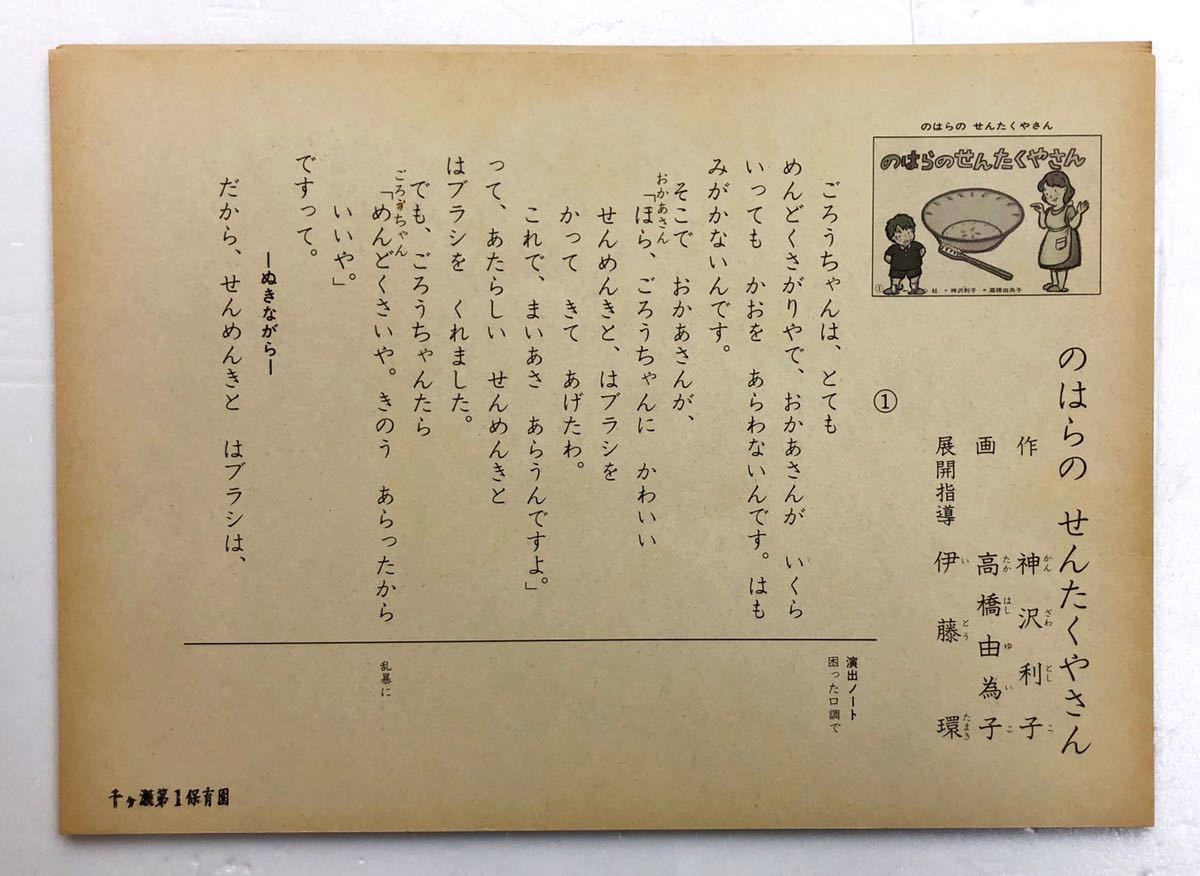 のはらの せんたくやさん
のはらのせんたくやさん
① 社・神沢利子・高橋由為子
のはらの せんたくやさん
作 神沢利子
かん ざわ とし こ
画 高橋由為子
たか はし ゆ い こ
展開指導 伊藤 環
い とう たまき
①
ごろうちゃんは、とても
めんどくさがりやで、おかあさんが いくら
いっても かおを あらわないんです。はも
みがかないんです。
そこで おかあさんが、
おかあさん
「ほら、ごろうちゃんに かわいい
せんめんきと、はブラシを
かって きて あげたわ。
これで、まいあさ あらうんですよ。」
って、あたらしい せんめんきと
はブラシを くれました。
でも、ごろうちゃんたら
ごろうちゃん
「めんどくさいや。きのう あらったから
いいや」
ですって。
―ぬきながら―
だから、せんめんきと はブラシは、
演出ノート
困った口調で
乱暴に
千ヶ瀬第1保育園